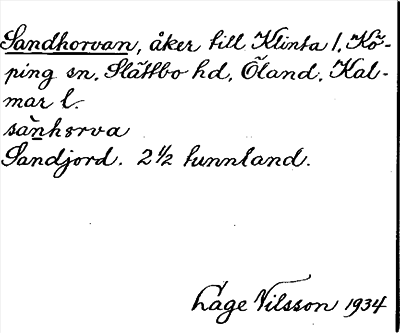 Sandhorvan, åker till Klinta 1, Kö-
ping sn, Slättbo hd, Öland. Kal-
mar l.
sànhorva
Sandjord. 2½ tunnland.
Låge Nilsson 1934